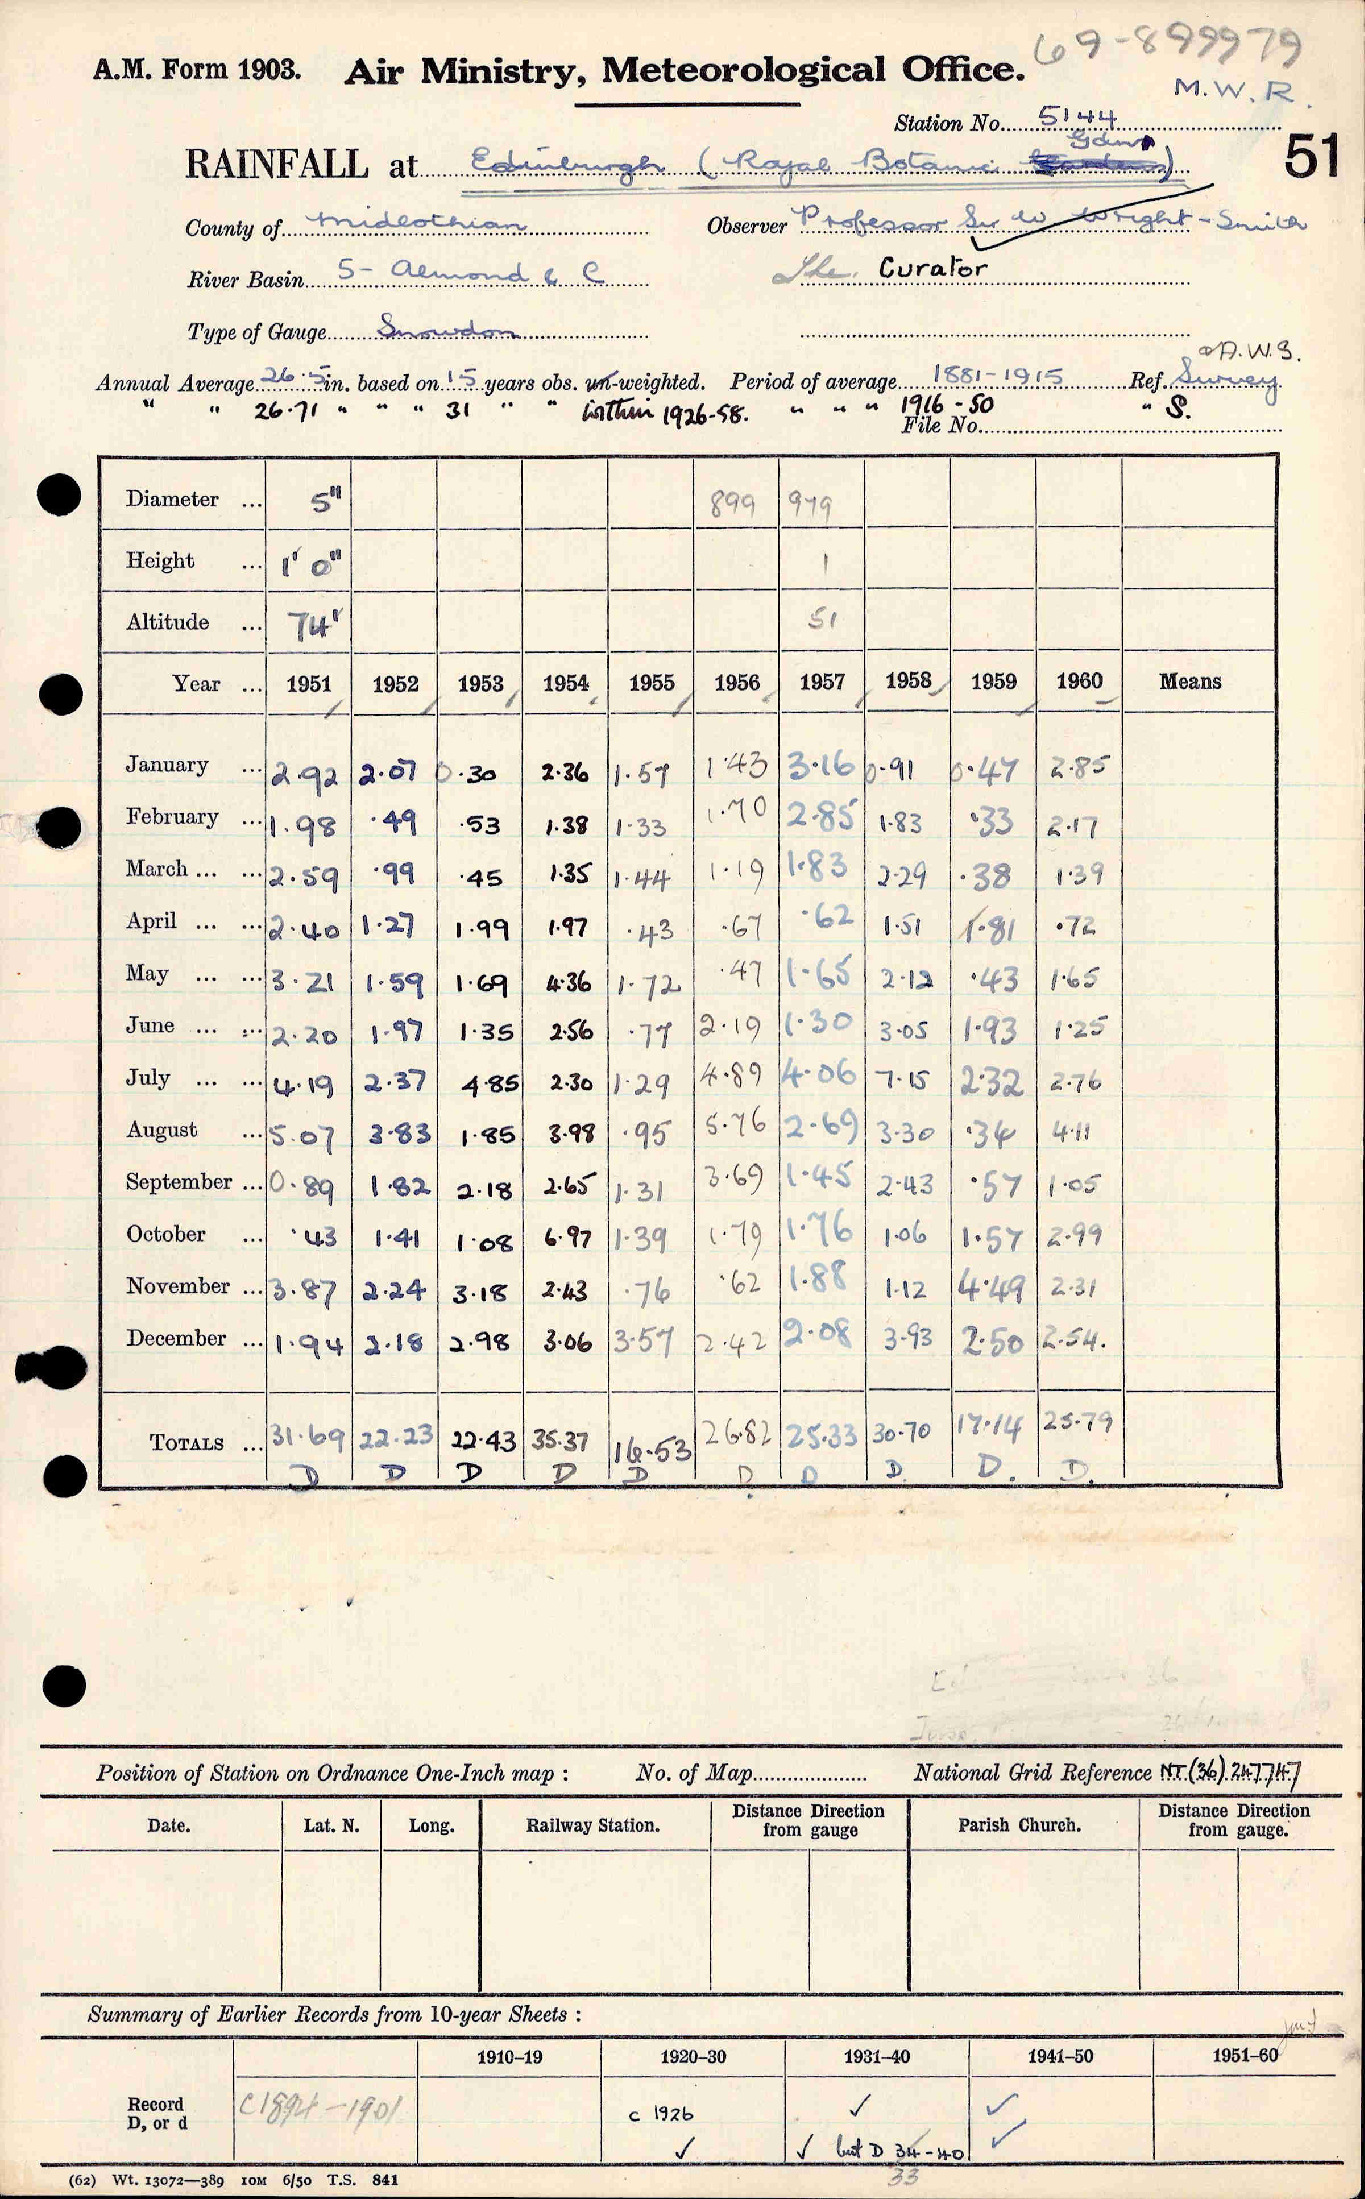 69-899979
A.M. Form 1903. Air Ministry, Meteorological Office.
M.W.R.
Station No. 5144
Gdns
RAINFALL at Edinburgh (Royal Botanic Gardens)
51
County of Midlothian Observer Professor Sir W Wright-Smith
River Basin 5- Almond & C The Curator
Type of Gauge Snowdon
A.W.S.
Annual Average 26.5 in. based on 15 years obs. un-weighted. Period of average 1881-1915 Ref. Survey
" " 26.71 " " " 31 " " within 1926-58. " " " 1916-50 " S.
File No.
Diameter ... 5" 899 979
Height ... 1' 0" 1
Altitude ... 74' 51
Year ... 1951 1952 1953 1954 1955 1956 1957 1958 1959 1960 Means
January ... 2.92 2.07 0.30 2.36 1.57 1.43 3.16 0.91 0.47 2.85
February ... 1.98 .49 .53 1.38 1.33 1.70 2.85 1.83 .33 2.17
March ... ... 2.59 .99 .45 1.35 1.44 1.19 1.83 2.29 .38 1.39
April ... ... 2.40 1.27 1.99 1.97 .43 .67 .62 1.51 1.81 .72
May ... ... 3.21 1.59 1.69 4.36 1.72 .47 1.65 2.12 .43 1.65
June ... ... 2.20 1.97 1.35 2.56 .77 2.19 1.30 3.05 1.93 1.25
July ... ... 4.19 2.37 4.85 2.30 1.29 4.89 4.06 7.15 2.32 2.76
August ... 5.07 3.83 1.85 3.98 .95 5.76 2.69 3.30 .34 4.11
September ... 0.89 1.82 2.18 2.65 1.31 3.69 1.45 2.43 .57 1.05
October ... .43 1.41 1.08 6.97 1.39 1.79 1.76 1.06 1.57 2.99
November ... 3.87 2.24 3.18 2.43 .76 .62 1.88 1.12 4.49 2.31
December ... 1.94 2.18 2.98 3.06 3.57 2.42 2.08 3.93 2.50 2.54.
TOTALS ... 31.69 22.23 22.43 35.37 16.53 26.82 25.33 30.70 17.14 25.79
D D D D D D D D. D. D.
Position of Station on Ordnance One-Inch map : No. of Map National Grid Reference NT.(36).247747
Date. Lat. N. Long. Railway Station. Distance Direction from gauge Parish Church. Distance Direction from gauge.
Summary of Earlier Records from 10-year Sheets :
1910–19 1920–30 1931–40 1941–50 1951–60
Record D, or d c1894-1901 c 1926 ✓ ✓
✓ ✓ but D 34-40 ✓
33
(62) Wt. 13072—389 10M 6/50 T.S. 841